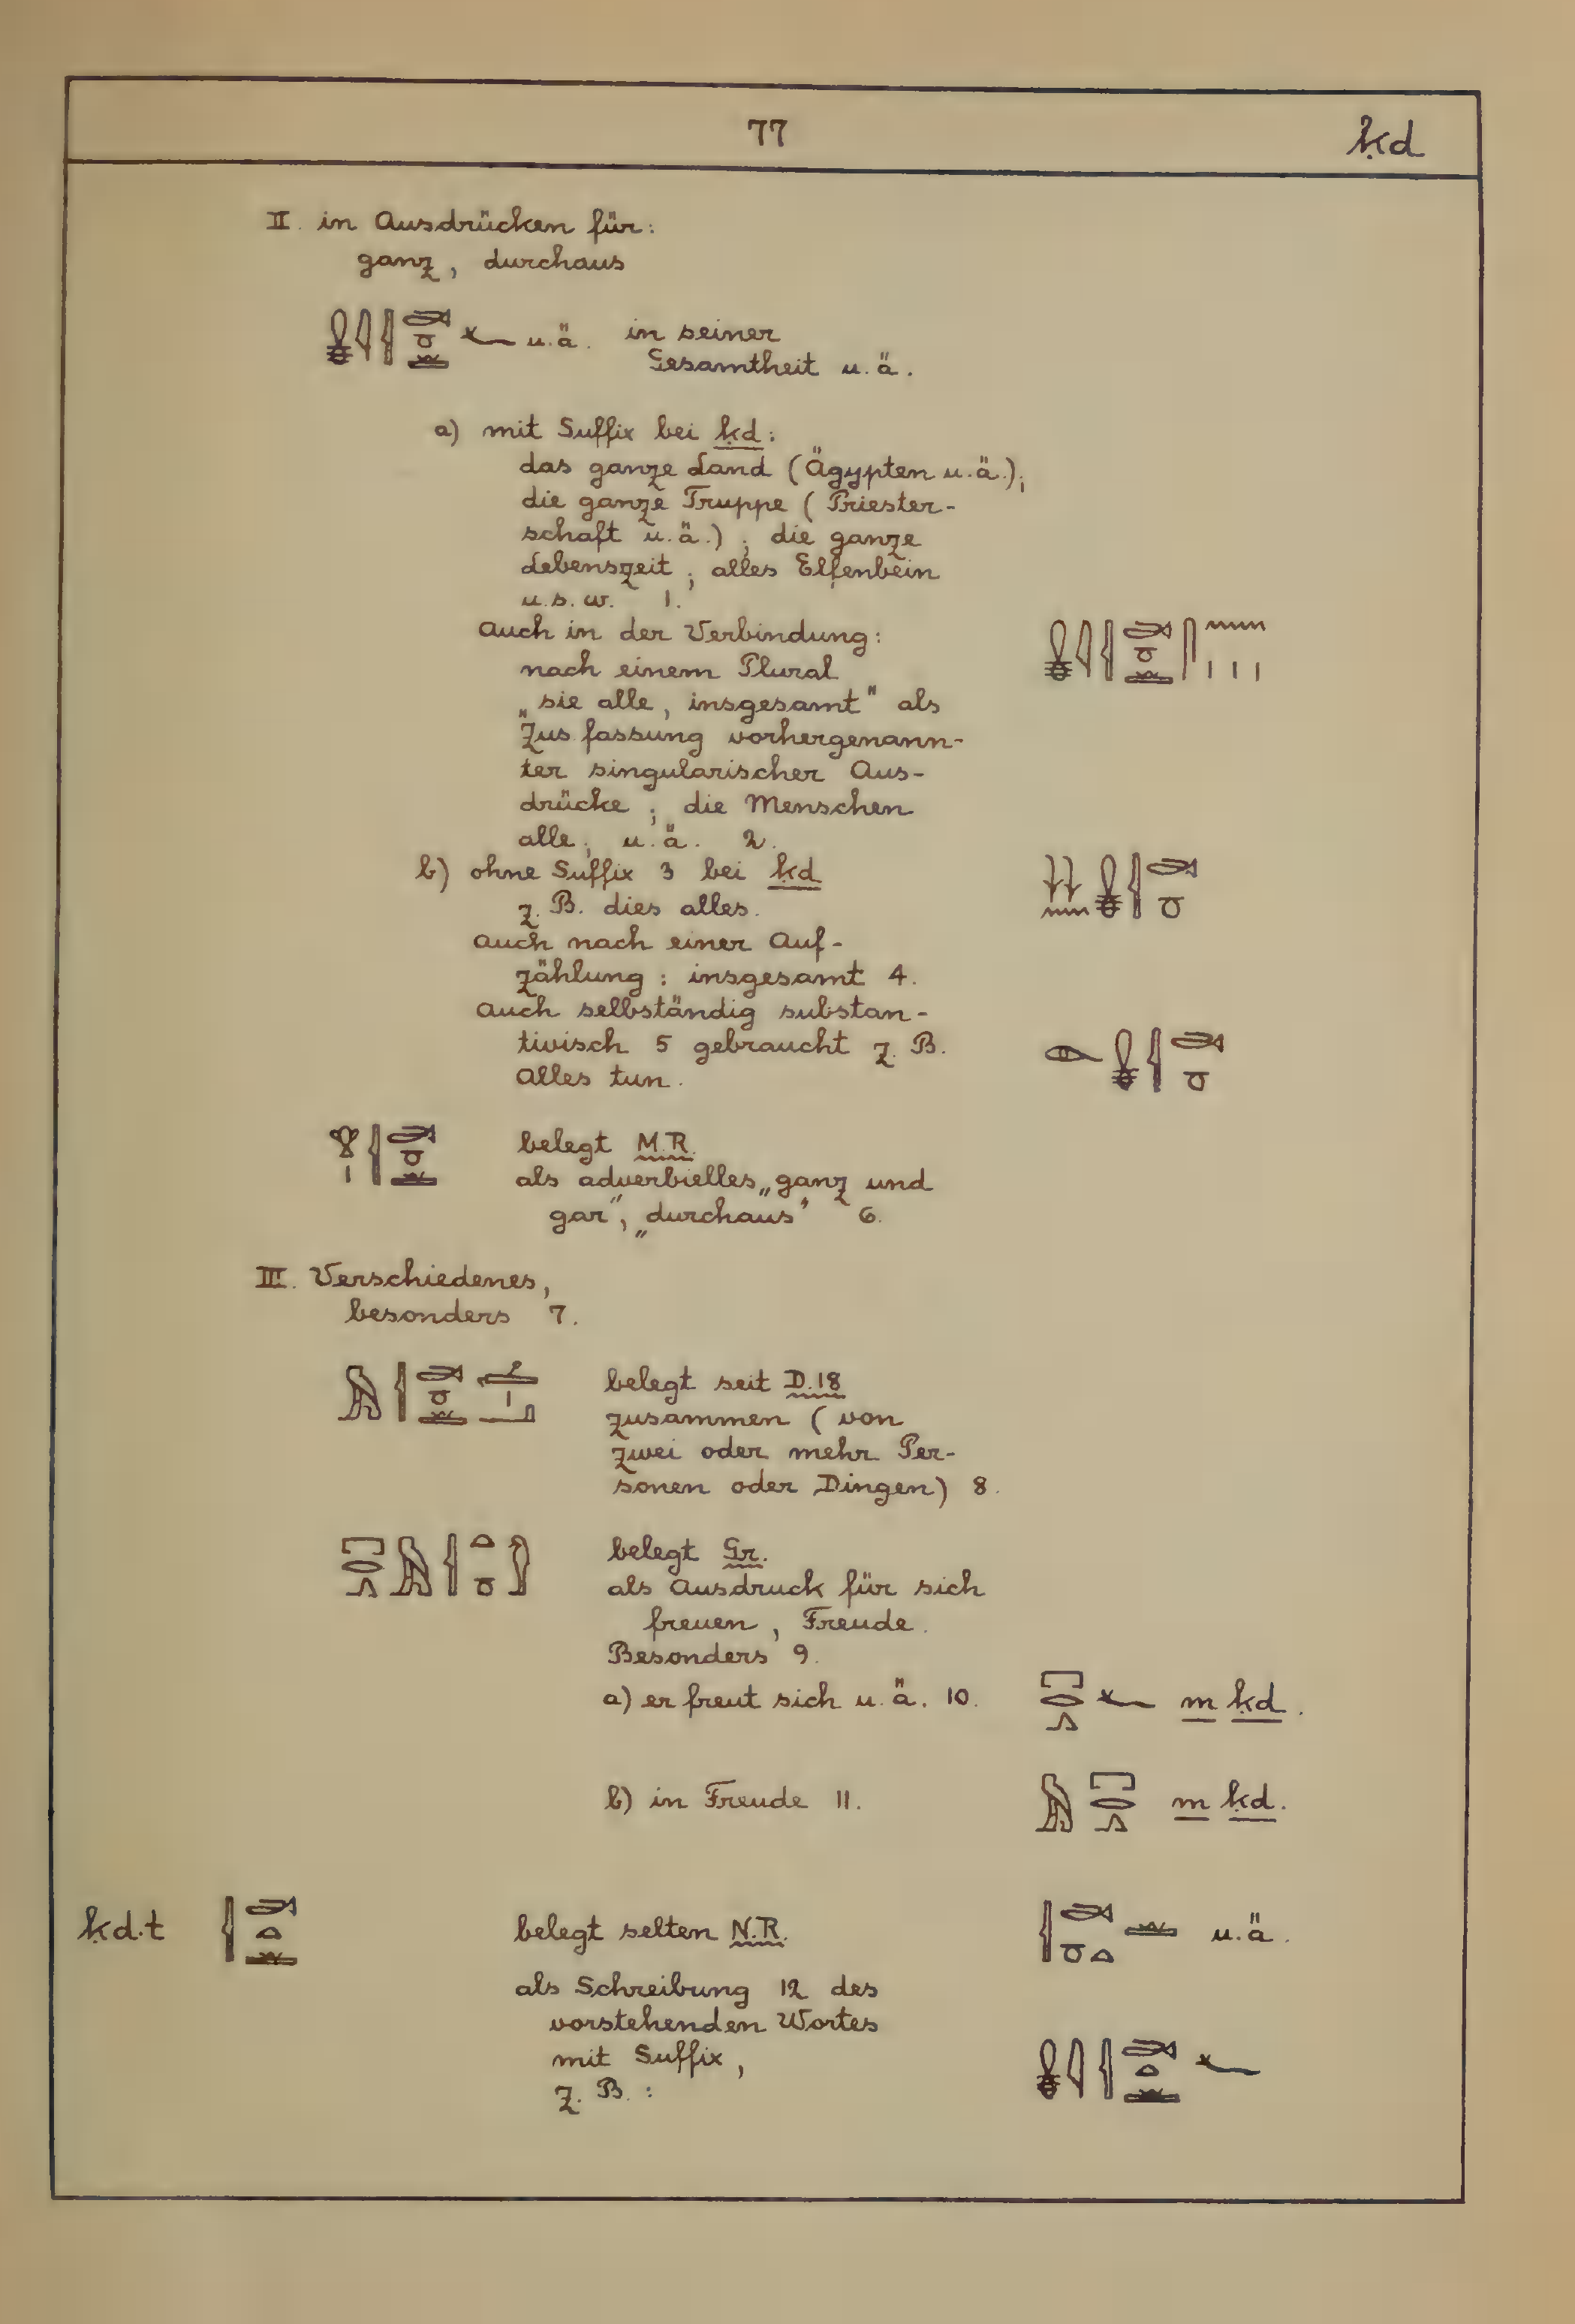 77 ḳd
II. in Ausdrücken für:
ganz, durchaus
u.ä. in seiner
Gesamtheit u.ä.
a) mit Suffix bei ḳd:
das ganze Land (Ägypten u.ä.);
die ganze Truppe (Priester-
schaft u.ä.); die ganze
Lebenszeit; alles Elfenbein
u.s.w. 1.
Auch in der Verbindung:
nach einem Plural
„sie alle, insgesamt" als
Zusfassung vorhergenann-
ter singularischer Aus-
drücke; die Menschen
alle; u.ä. 2.
b) ohne Suffix 3 bei ḳd
z. B. dies alles.
Auch nach einer Auf-
zählung: insgesamt 4.
Auch selbständig substan-
tivisch 5 gebraucht z. B.
Alles tun.
belegt M.R.
als adverbielles „ganz und
gar", „durchaus" 6.
III. Verschiedenes,
besonders 7.
belegt seit D.18
zusammen (von
zwei oder mehr Per-
sonen oder Dingen) 8.
belegt Gr.
als Ausdruck für sich
freuen, Freude.
Besonders 9.
a) er freut sich u.ä. 10. m ḳd.
b) in Freude 11. m ḳd.
ḳd.t belegt selten N.R. u.ä.
als Schreibung 12 des
vorstehenden Wortes
mit Suffix,
z. B.: